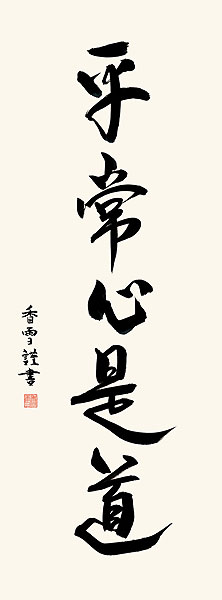 平常心是道
香雪謹書